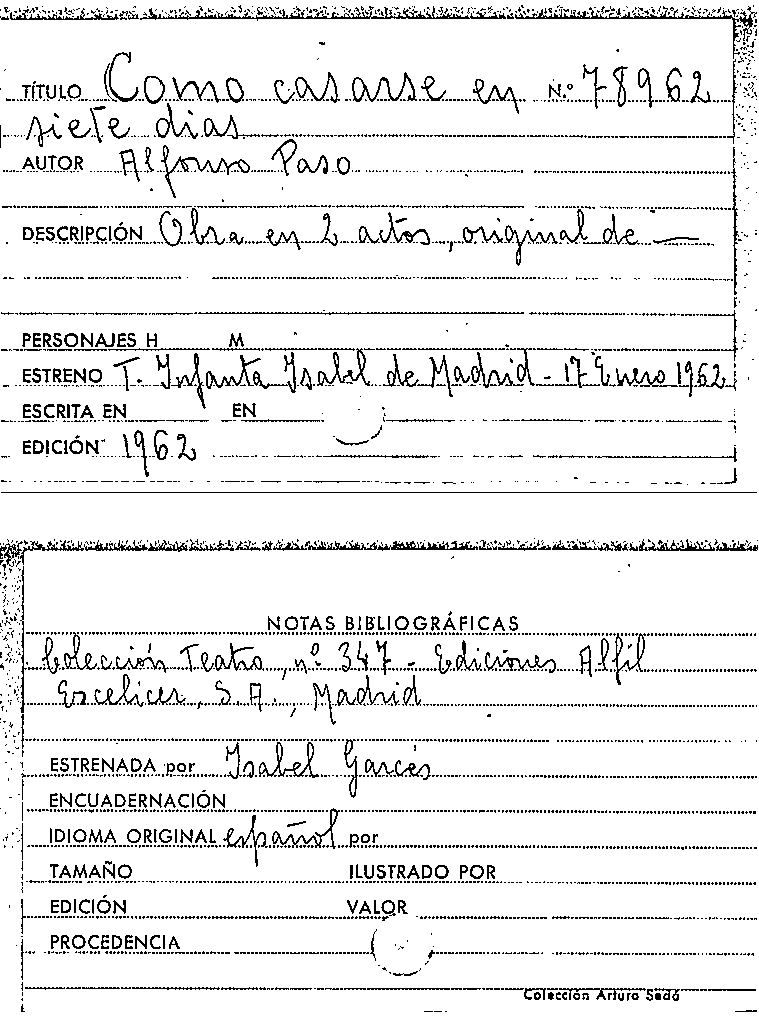 TÍTULO Como casarse en N.º 78962
siete dias
AUTOR Alfonso Paso
DESCRIPCIÓN Obra en 2 actos, original de —
PERSONAJES H M
ESTRENO T. Infanta Isabel de Madrid - 17 Enero 1962
ESCRITA EN EN
EDICIÓN 1962
NOTAS BIBLIOGRÁFICAS
Colección Teatro, nº 347 - Ediciones Alfil
Escelicer, S.A., Madrid
ESTRENADA por Isabel Garcés
ENCUADERNACIÓN
IDIOMA ORIGINAL español por
TAMAÑO ILUSTRADO POR
EDICIÓN VALOR
PROCEDENCIA
Colección Arturo Sedó